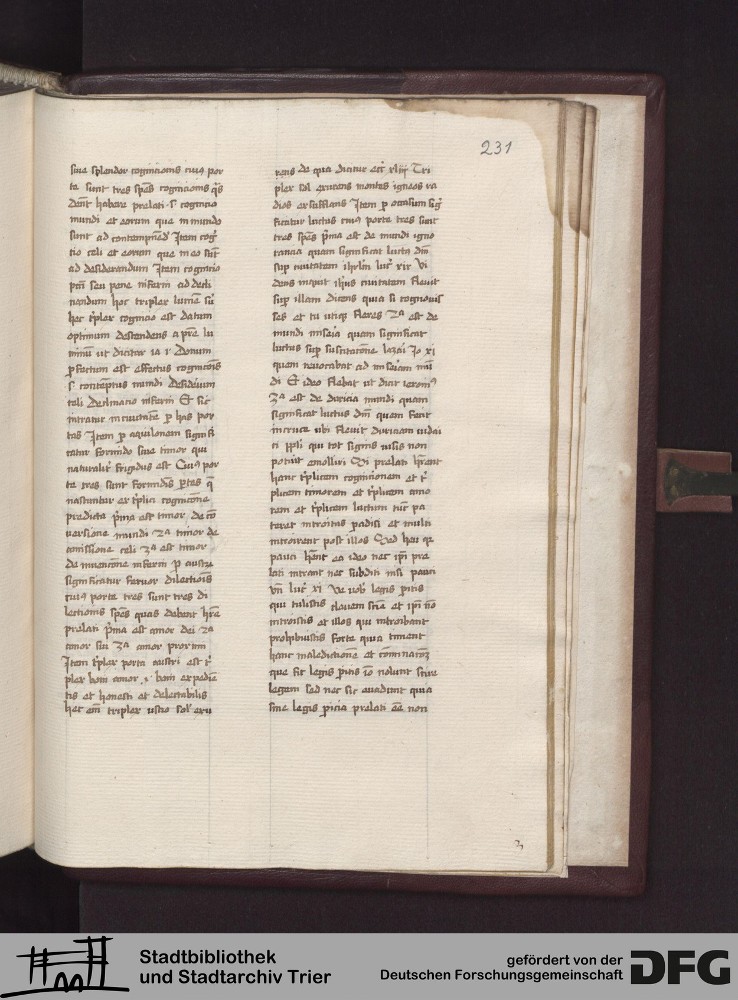 231
siue splendor cognicionis cuius por
te sunt tres spēs cognicionis q̄s
debent habere prelati .s. cognicio
mundi et eorum que in mundo
sunt ad contempnēd Item cog
tio celi et eorum que in eo sūt
ad desiderandum Item cognicio
seu pene inferni ad decli
nandum hoc triplex lumē
hec t'plex cognicio est datum
optimum descendens a pr̄e lu
minū ut dicitur ia i Donum
p̄fectum est effectus cognicōis
s. contēptus mundi Desideium
celi Declinatio inferni Et sic
intratur in ciuitatē p has por
tas Item p aquilonem signifi
catur formido siue timor qui
naturalit' frigidus est Cuius por
te tres sunt formidīs p̄tes q̄
nascuntur ex t'plici cognicōne
predicta p̄ma est timor de cō
uersione mundi 2ª timor de
amissione celi 3ª est timor
de inuencōne inferni p austrū
significatur feruor dilectiōis
cuius porte tres sunt tres di
lectionis spēs quas debent hr̄e
prelati p̄ma est amor dei 2ª
amor sui 3ª amor proximi
Item t'plex porta austri est t'
plex boni amor .i. boni expediē
tis et honesti et delectabilis
hec em̄ triplex ustio sol' exu
rens de qua dicitur ecc' xliij Tri
plex sol exurens montes igneos ra
dios exsufflans Item p occasum sig'
ficatur luctus cuius porte tres sunt
tres spēs p̄ma est de mundi igno
rancia quam significat luctus dn̄i
sup ciuitatem ihrl'm luc' xix Vi
dens inquit ih̄us ciuitatem fleuit
sup illam dicens quia si cognouis
ses et tu utiq fleres 2ª est de
mundi miseia quam significat
luctus sup suscitacōne lazai Jo xi
quem reuocabat ad miseiam mū
di Et ideo flebat ut dicit ieroni'
3ª est de duricia mundi quam
significat luctus dn̄i quem fecit
in cruce ubi fleuit duriciam iudai
ci ppli qui tot signis uisis non
potuit emolliri Si prelati hr̄ent
hanc t'plicem cognicionem et t'
plicem timorem et t'plicem amo
rem et t'plicem luctum tūc pa
teret introitus p̄adisi et multi
introirent post illos Sed heu q
pauci hn̄t ea ideo nec ip̄i pre
lati intrant nec subditi nisi pauci
vn̄ luc' xi Ve uob legis p̄itis
qui tulistis clauem scīe et ip̄i nō
introistis et illos qui introibant
prohibuistis forte quia timent
hanc maledictionē et
que fit legis p̄itis iō nolunt scire
legem sed nec sic euadunt quia
sine legis p̄icia prelati ēē non
Stadtbibliothek
und Stadtarchiv Trier
gefördert von der
Deutschen Forschungsgemeinschaft
DFG